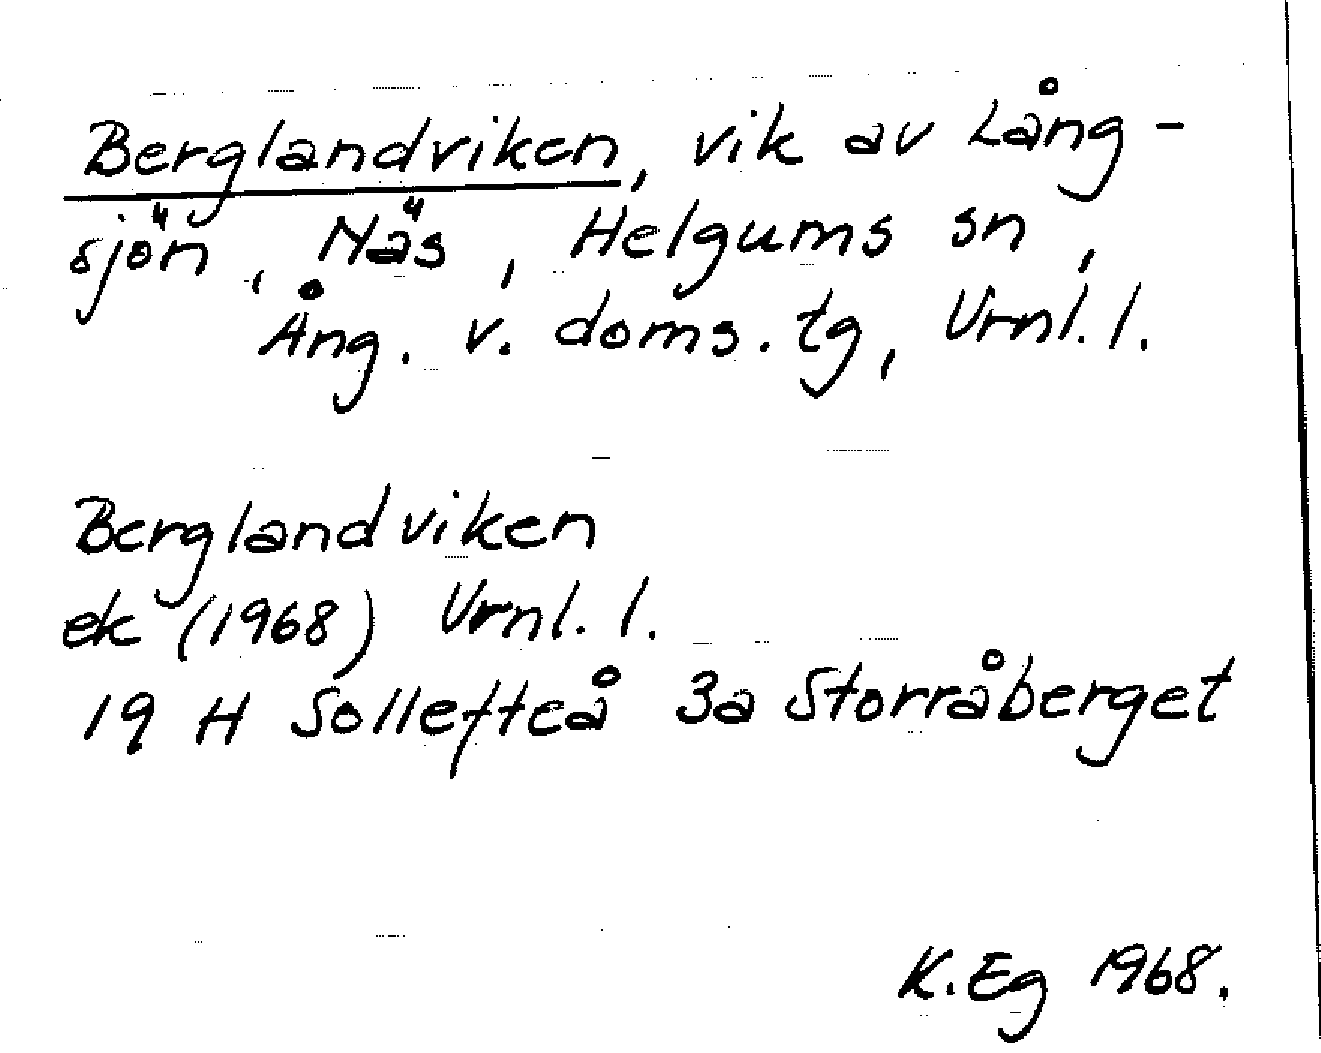 Berglandviken, vik av Lång-
sjön, Näs, Helgums sn,
Ång. v. doms. tg, Vrnl. l.
Berglandviken
ek (1968) Vrnl. l.
19 H Sollefteå 3a Storråberget
K. Eg 1968.